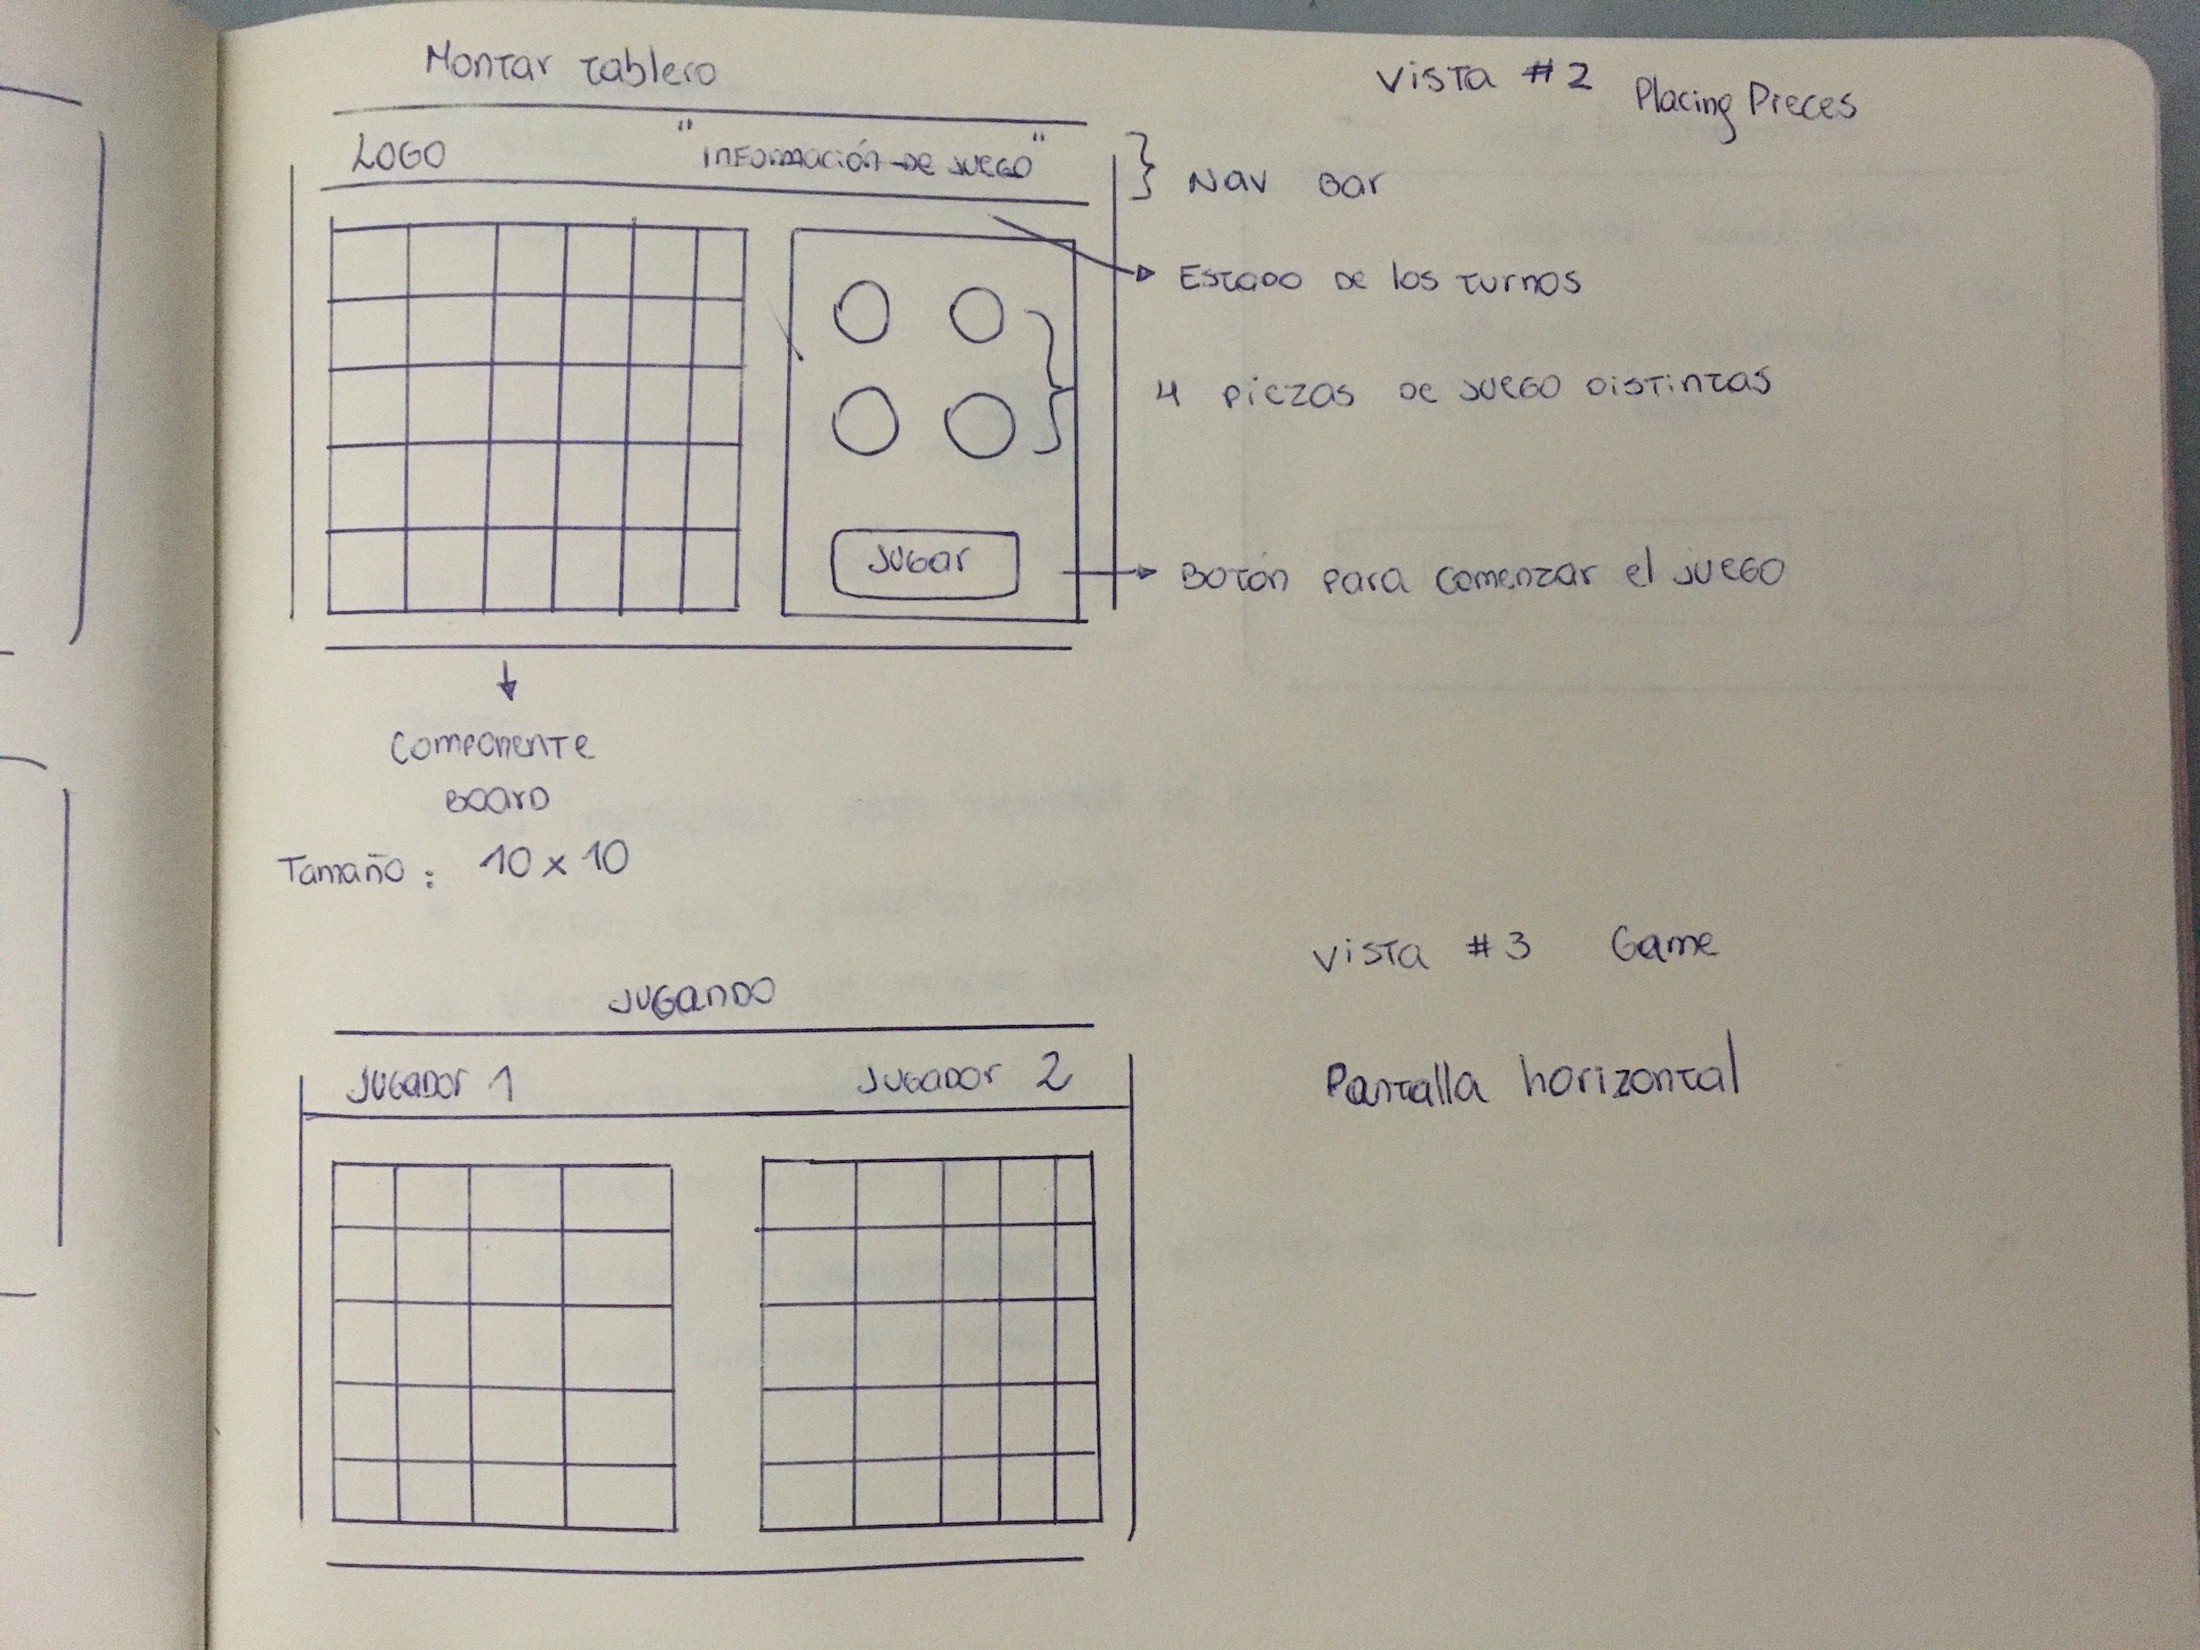 Montar tablero
Vista #2 Placing Pieces
LOGO "Información de juego"
} Nav Bar
Estado de los turnos
4 piezas de juego distintas
Jugar
Botón para comenzar el juego
Componente
Board
Tamaño: 10 x 10
Vista #3 Game
Jugando
Jugador 1 Jugador 2
Pantalla horizontal